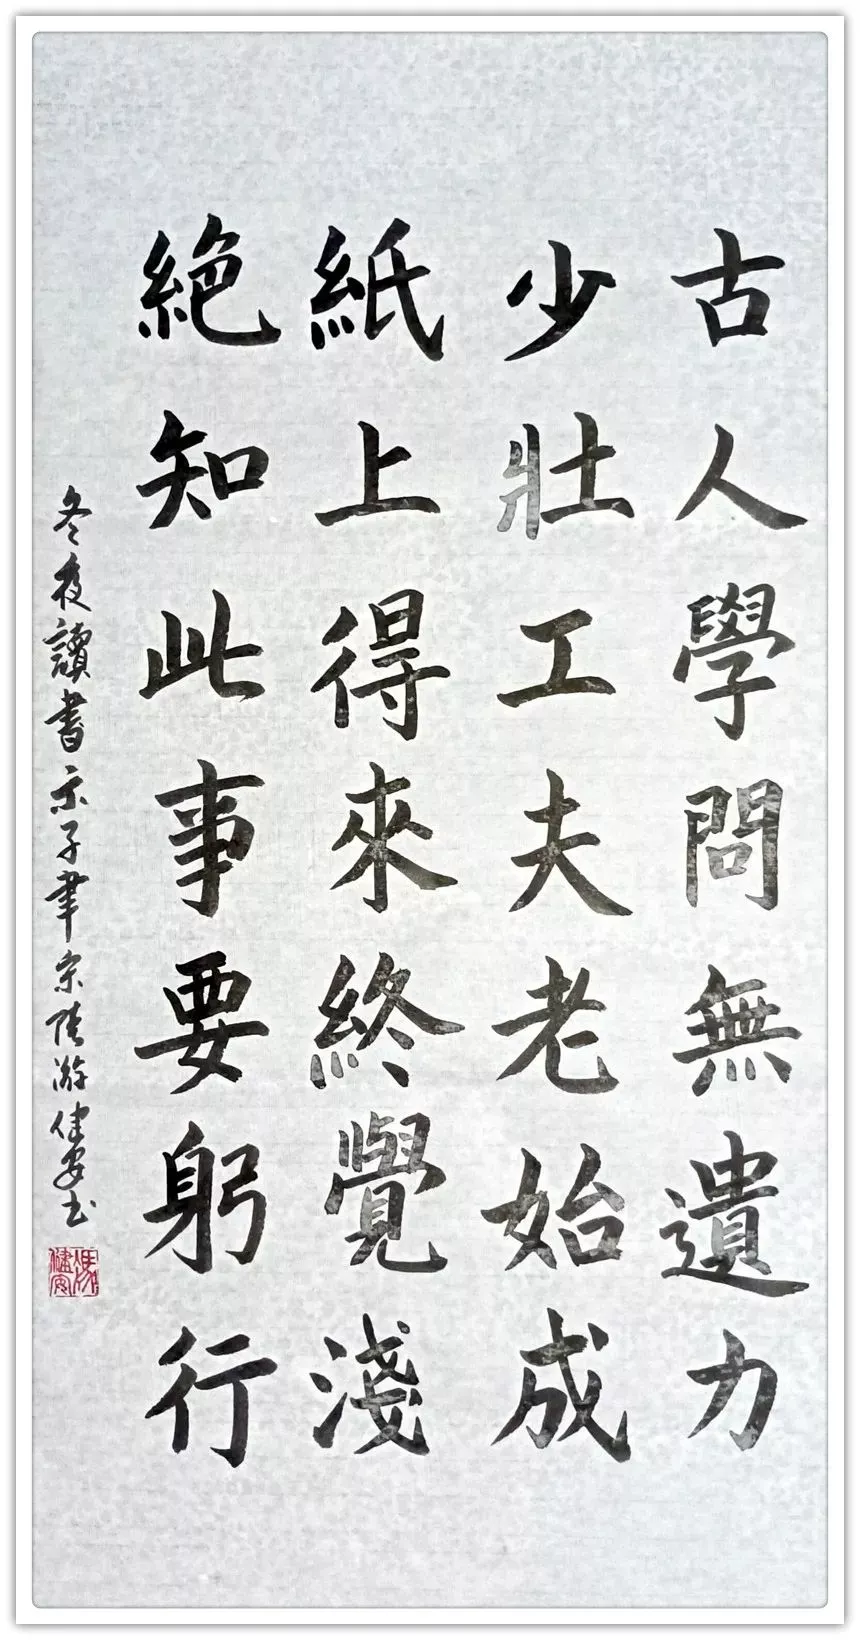 古人學問無遺力
少壯工夫老始成
紙上得來終覺淺
絕知此事要躬行
冬夜讀書示子聿宋陸游健安书
馮健安